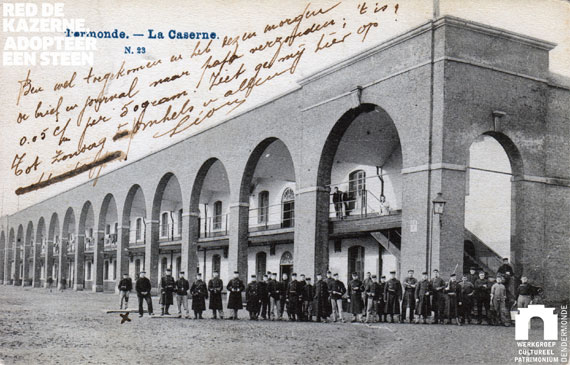 RED DE
KAZERNE
ADOPTEER
EEN STEEN
dermonde. — La Caserne.
N. 23
Ben wel toegekomen en heb dezen morgen
den brief en journal naar papa verzonden; 't is
0.05 cs per 50 gram. Ziet ge mij hier op?
Tot zondag
Léon
x
WERKGROEP
CULTUREEL
PATRIMONIUM
DENDERMONDE